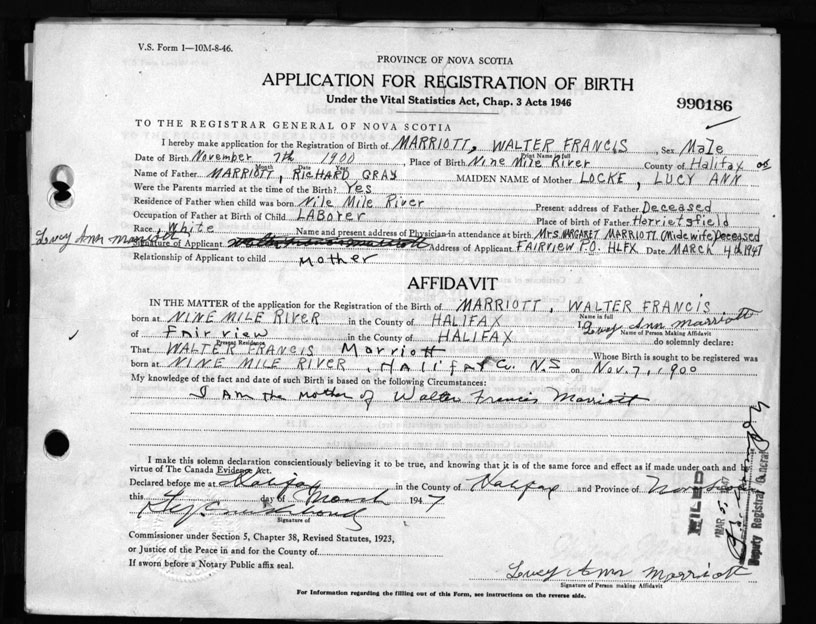 V.S. Form 1—10M-8-46.
PROVINCE OF NOVA SCOTIA
APPLICATION FOR REGISTRATION OF BIRTH
Under the Vital Statistics Act, Chap. 3 Acts 1946
990186
TO THE REGISTRAR GENERAL OF NOVA SCOTIA
I hereby make application for the Registration of Birth of MARRIOTT, WALTER FRANCIS, Sex Male
Print Name in full
Date of Birth November 7th 1900, Place of Birth Nine Mile River County of Halifax
Month Day
Name of Father MARRIOTT, RICHARD GRAY MAIDEN NAME of Mother LOCKE, LUCY ANN
Were the Parents married at the time of the Birth? Yes
Residence of Father when child was born Nile Mile River Present address of Father Deceased
Occupation of Father at Birth of Child LABorer Place of birth of Father Harrietsfield
Race White Name and present address of Physician in attendance at birth Mrs. MARGARET MARRIOTT (Midewife) Deceased
Lucy Ann Marriott
Signature of Applicant Address of Applicant FAIRVIEW P.O. HLFX Date MARCH 4th 1947
Relationship of Applicant to child Mother
AFFIDAVIT
IN THE MATTER of the application for the Registration of the Birth of MARRIOTT, WALTER FRANCIS
Name in full
born at NINE MILE RIVER in the County of HALIFAX I, Lucy Ann Marriott
Name of Person Making Affidavit
of Fairview in the County of HALIFAX do solemnly declare:
Present Residence
That WALTER FRANCIS Marriott Whose Birth is sought to be registered was
born at NINE MILE RIVER, Halifax Co. N.S on Nov. 7, 1900
My knowledge of the fact and date of such Birth is based on the following Circumstances:
I Am the mother of Walter Francis Marriott
I make this solemn declaration conscientiously believing it to be true, and knowing that it is of the same force and effect as if made under oath and by
virtue of The Canada Evidence Act.
Declared before me at Halifax in the County of Halifax and Province of
this day of March 1947
Signature of
Commissioner under Section 5, Chapter 38, Revised Statutes, 1923,
or Justice of the Peace in and for the County of
If sworn before a Notary Public affix seal.
Lucy Ann Marriott
Signature of Person making Affidavit
For Information regarding the filling out of this Form, see instructions on the reverse side.
FILED
MAR 5, 1947
Deputy Registrar General